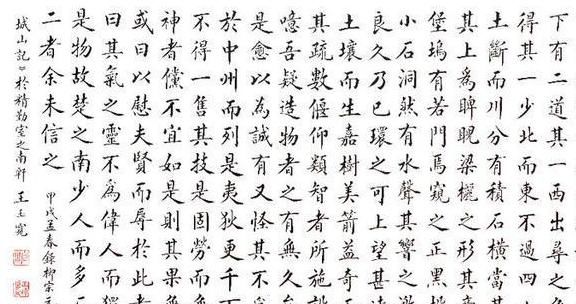 下有二道其一西出尋之
得其一少北而東不過四
土斷而川分有積石橫當其
其上為睥睨梁欐之形其
堡塢有若門焉窺之正黑
小石洞然有水聲其響之
良久乃已環之可上望甚
土壤而生嘉樹美箭益奇
其疏數偃仰類智者所施
噫吾疑造物者之有無久
是愈以為誠有又怪其
於中州而列是夷狄更千
不得一售其技是固勞而
神者儻不宜如是則其果
或曰以慰夫賢而辱於此
曰其氣之靈不為偉人而
是物故楚之南少人而多
二者余未信之 甲戌孟春錄柳宗元
城山記》於精勤室之南軒 王玉寬